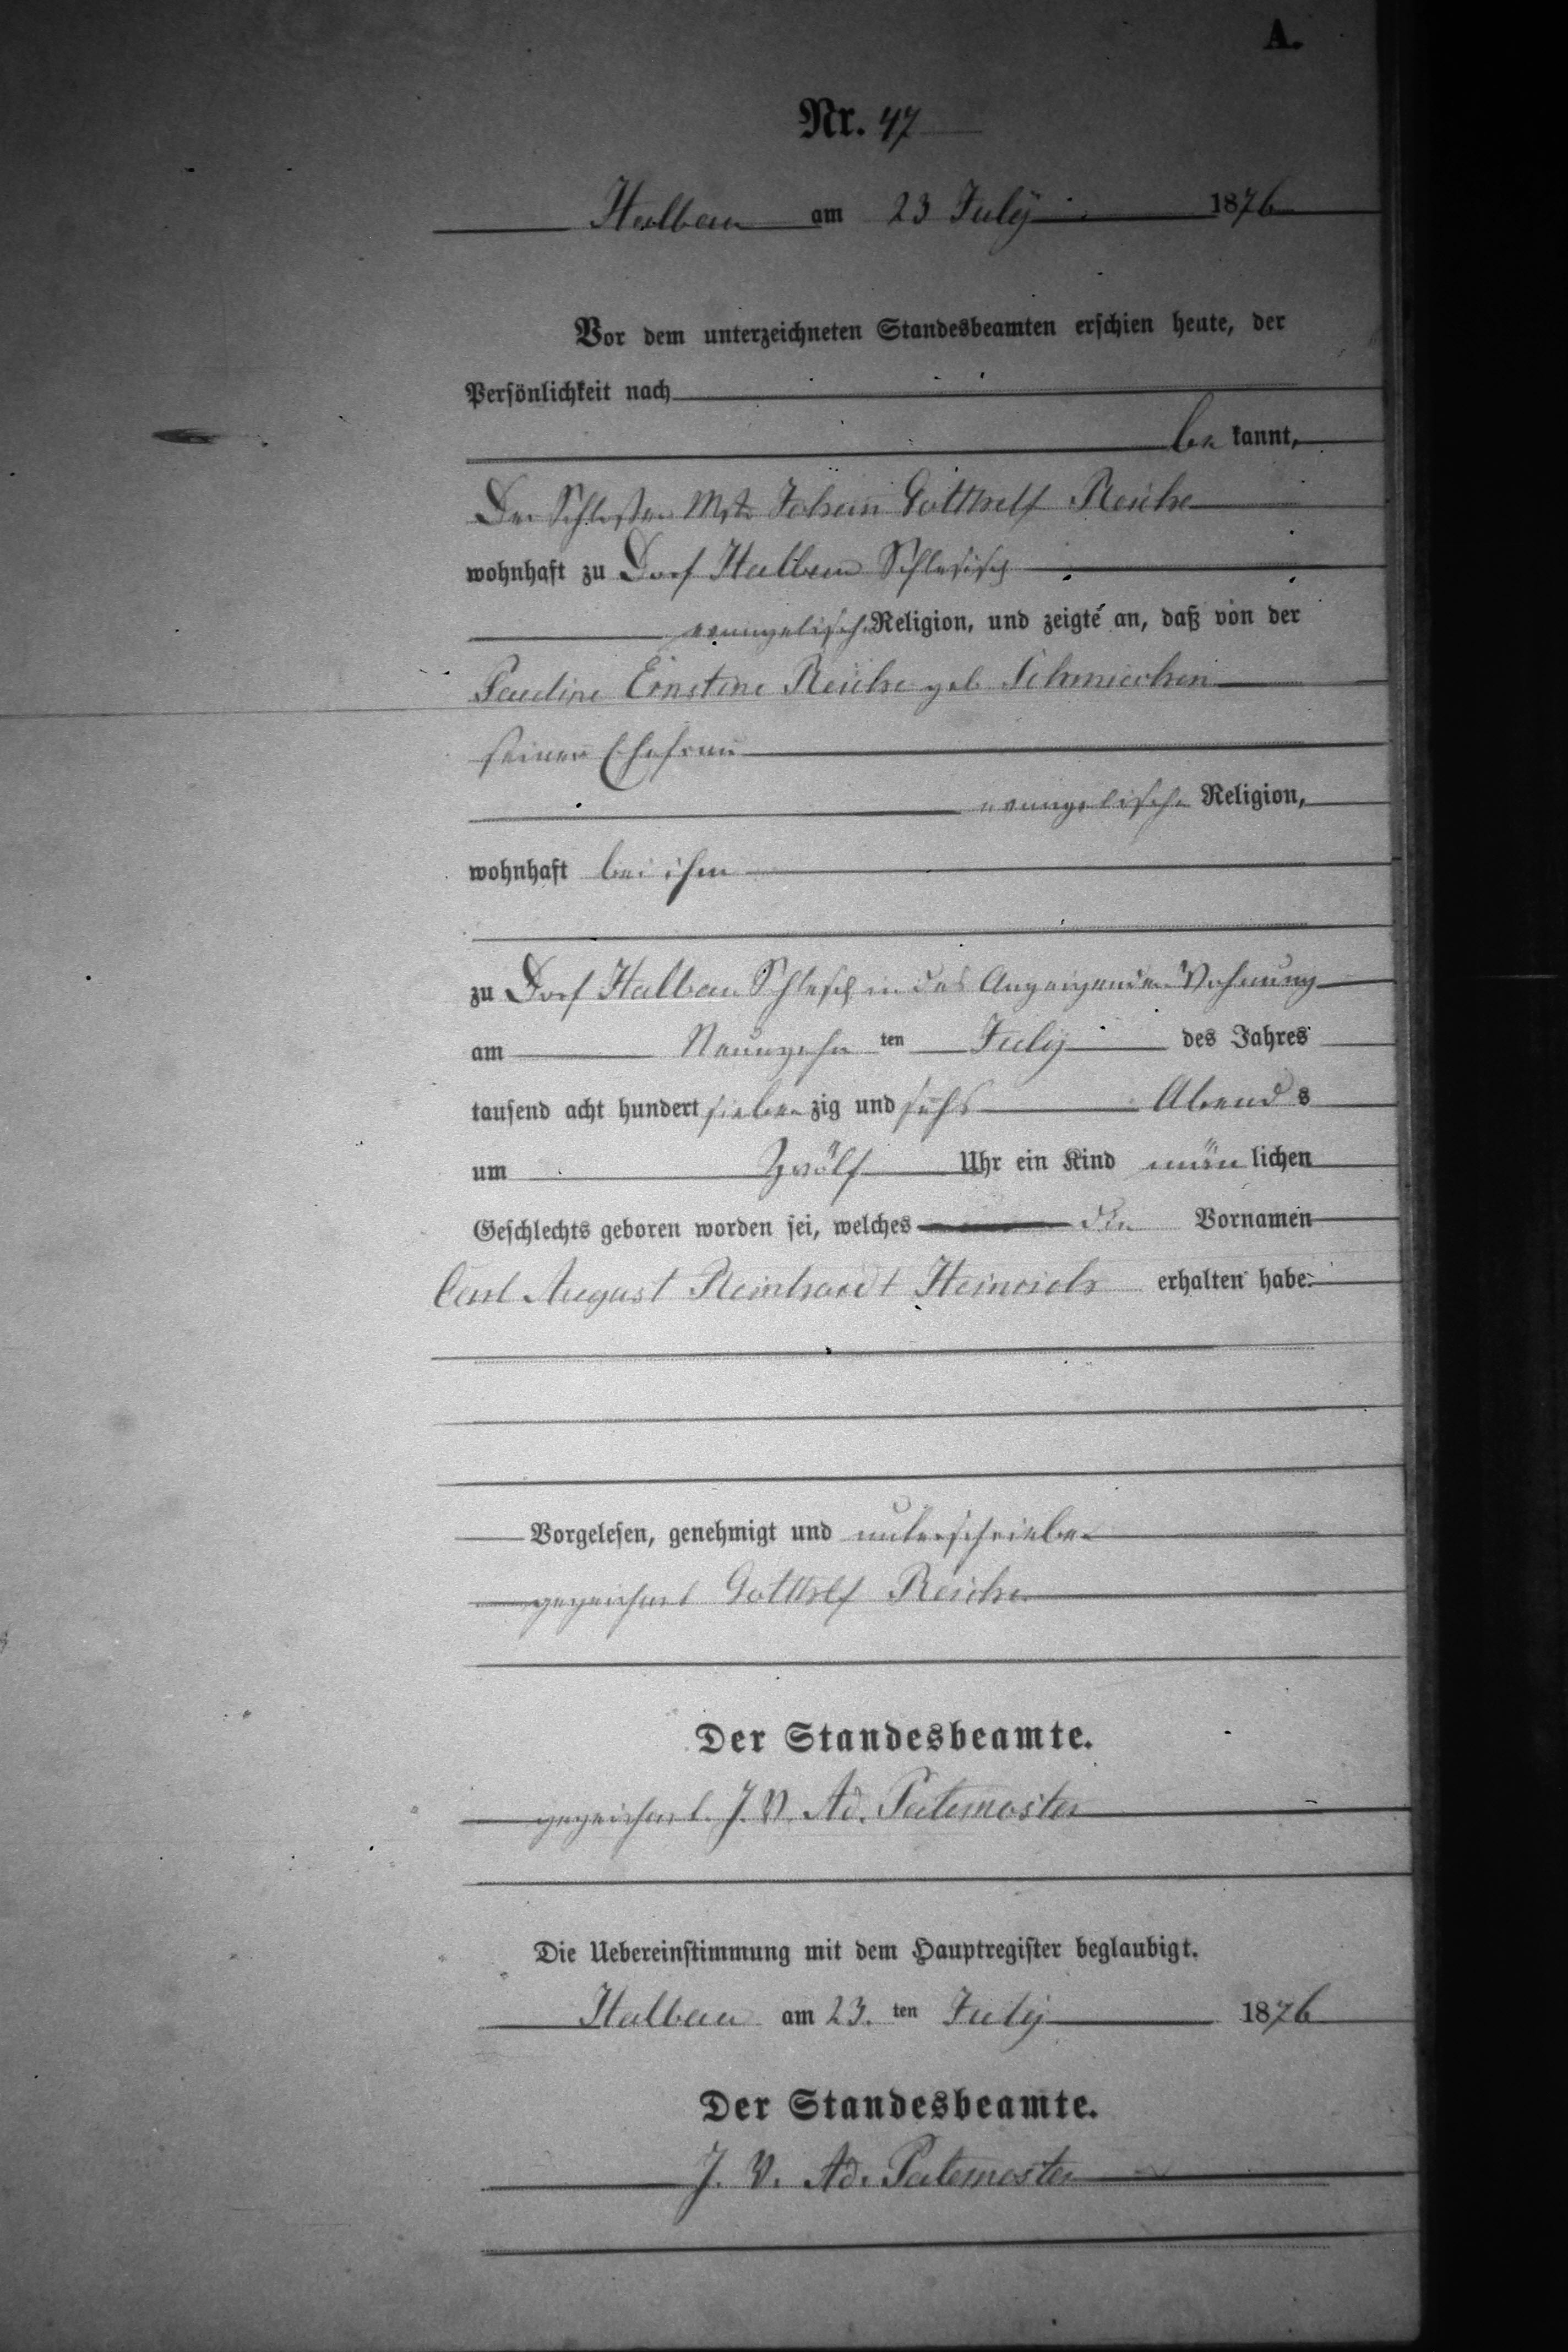 A.
Nr. 47
Halbau am 23 July 1876
Vor dem unterzeichneten Standesbeamten erschien heute, der
Persönlichkeit nach
be kannt,
Der Schlosser Mstr. Johan̄ Gotthelf Reiche
wohnhaft zu Dorf Halbau Schlesisch
evangelischer Religion, und zeigte an, daß von der
Pauline Ernstine Reiche geb. Schmiechen
seiner Ehefrau
evangelischer Religion,
wohnhaft bei ihm
zu Dorf Halbau Schlesch in des Anzeigenden Wohnung
am Neunzehn ten July des Jahres
tausend acht hundert sieben zig und sechs Abend s
um Zwölf Uhr ein Kind män̄ lichen
Geschlechts geboren worden sei, welches die Vornamen
Carl August Reinhardt Heinrich erhalten habe.
Vorgelesen, genehmigt und unterschrieben
gezeichnet Gotthelf Reiche
Der Standesbeamte.
gezeichnet. J. V. Ad. Paternoster
Die Uebereinstimmung mit dem Hauptregister beglaubigt.
Halbau am 23. ten July 1876
Der Standesbeamte.
J. V. Ad. Paternoster